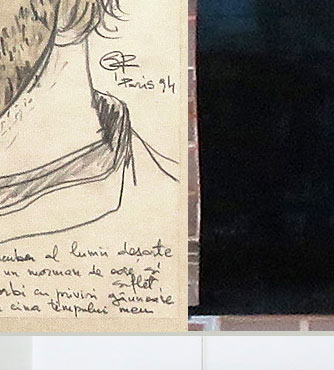 Paris 94
al lumii deșarte
un morman de oase, și
suflet
orbi cu priviri găunoase
cina timpului meu